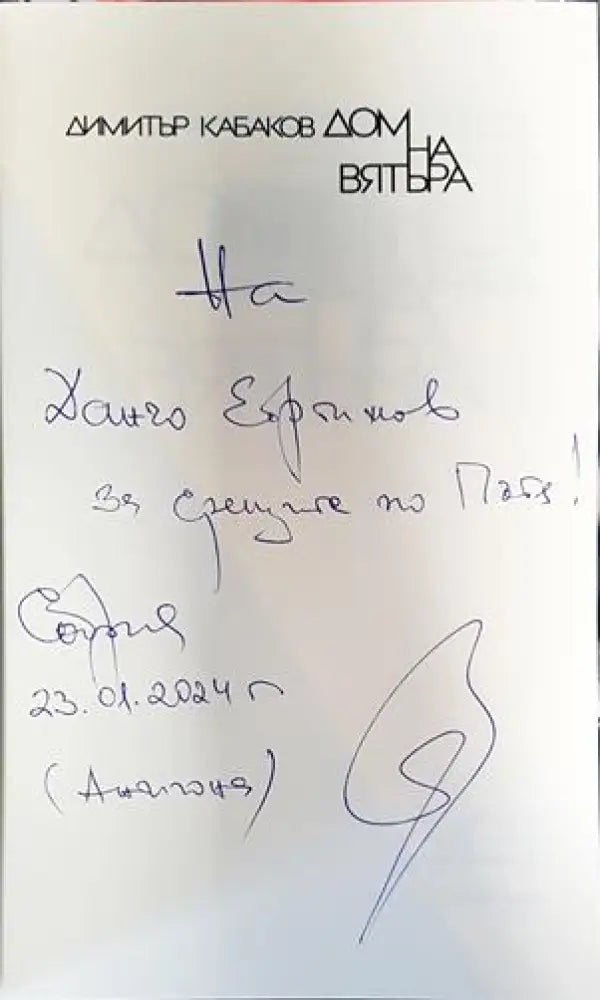 ДИМИТЪР КАБАКОВ ДОМ
НА
ВЯТЪРА
На
Ханчо Ефтимов
за срещите по Пътя!
София
23.01.2024 г